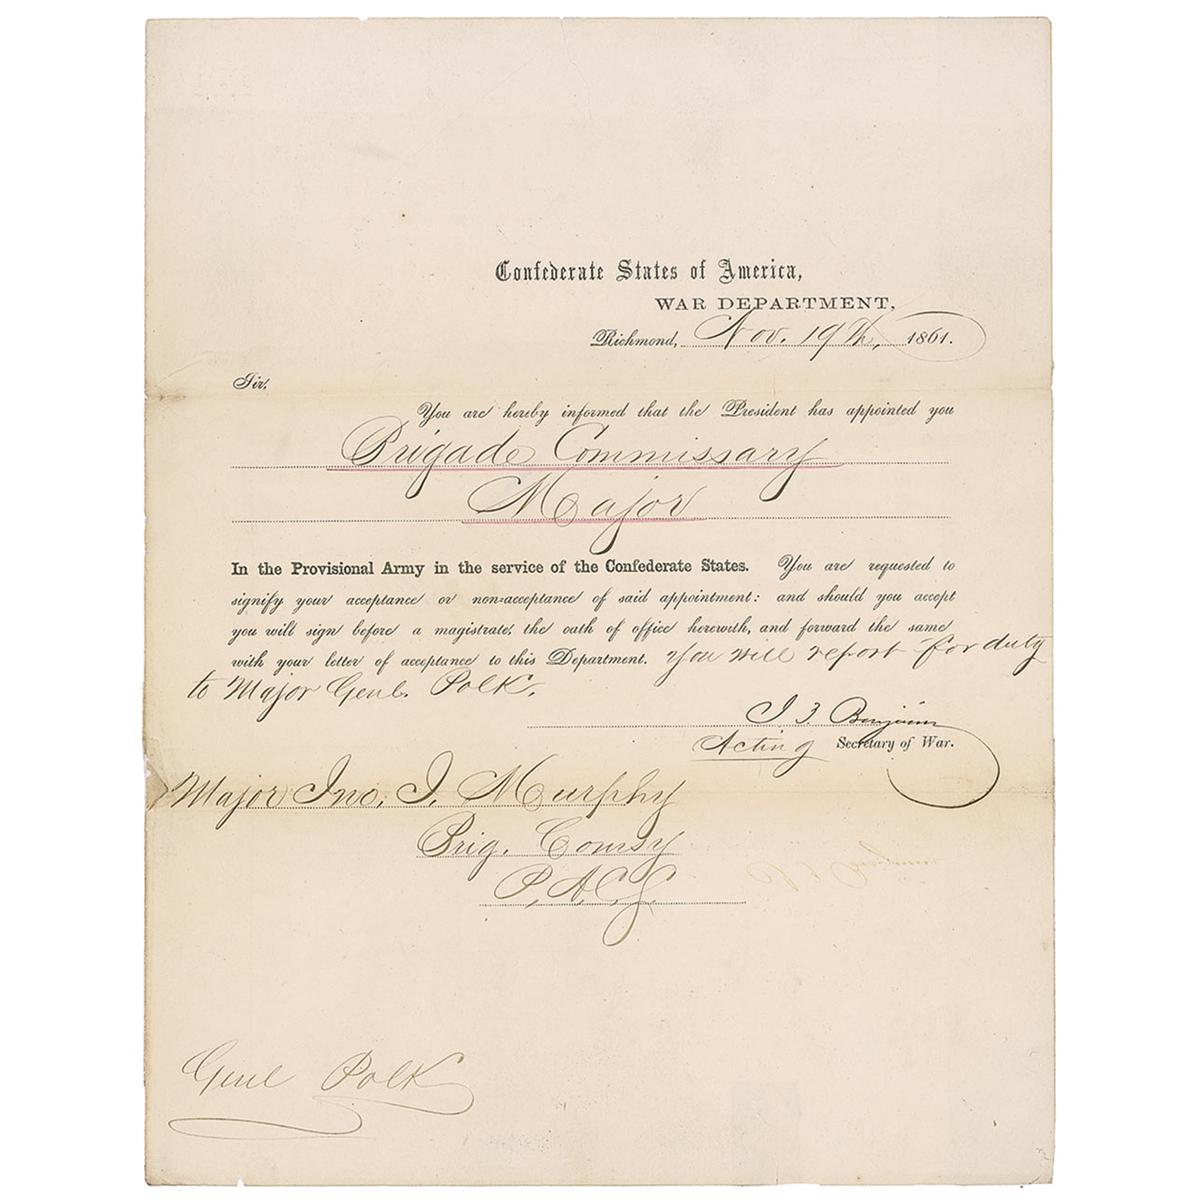 Confederate States of America,
WAR DEPARTMENT,
Richmond, Nov. 19th, 1861.
Sir.
You are hereby informed that the President has appointed you
Brigade Commissary
Major
In the Provisional Army in the service of the Confederate States. You are requested to
signify your acceptance or non=acceptance of said appointment: and should you accept
you will sign before a magistrate, the oath of office herewith, and forward the same
with your letter of acceptance to this Department. You will report for duty
to Major Genl. Polk.
J P Benjamin
Acting Secretary of War.
Major Jno. J. Murphy
Brig. Comsy
P.A.C.S.
Genl Polk